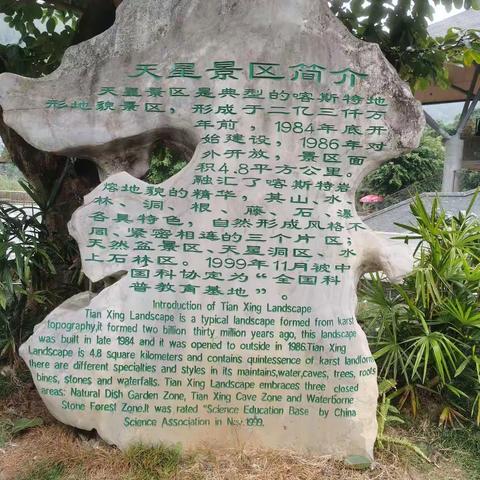 天星景区简介
天星景区是典型的喀斯特地
形地貌景区，形成于二亿三仟万
年前，1984年底开
始建设，1986年对
外开放，景区面
积4.8平方公里。
融汇了喀斯特岩
熔地貌的精华，其山、水、
林、洞、根、藤、石、瀑
各具特色，自然形成风格不
同、紧密相连的三个片区；
天然盆景区、天星洞区、水
上石林区。1999年11月被中
国科协定为“全国科
普教育基地”。
Introduction of Tian Xing Landscape
Tian Xing Landscape is a typical landscape formed from karst
topography,it formed two billion thirty million years ago, this landscape
was built in late 1984 and it was opened to outside in 1986.Tian Xing
Landscape is 4.8 square kilometers and contains quintessence of karst landform
there are different specialties and styles in its maintains,water,caves, trees, roots
bines, stones and waterfalls. Tian Xing Landscape embraces three closed
areas: Natural Dish Garden Zone, Tian Xing Cave Zone and Waterborne
Stone Forest Zone.It was rated “Science Education Base by China
Science Association in Nov.1999.